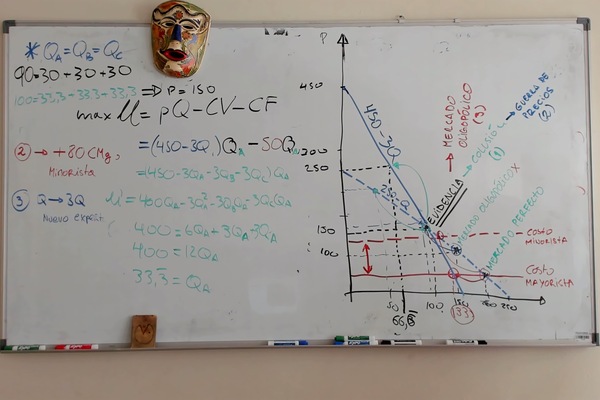 * QA = QB = QC
90 = 30 + 30 + 30
100 = 33,3 - 33,3 - 33,3 => P = 150
max U = pQ - CV - CF
= (450 - 3Q) QA - 50QA
② → +80 CMg,
Minorista
= (450 - 3QA - 3QB - 3QC) QA
③ Q → 3Q
Nuevo
U' = 400QA - 3QA² - 3QBQA - 3QCQA
400 = 6QA + 3QA + 3QA
400 = 12QA
33,3 = QA
P
450
300
250
150
100
450 - 3Q
250 - Q
EVIDENCIA
MERCADO OLIGOPÓLICO (3)
COLUSIÓN (1)
GUERRA DE PRECIOS (2)
MERCADO OLIGOPÓLICO X
MERCADO PERFECTO
COSTO MINORISTA
COSTO MAYORISTA
50
66,6
100
150
200
250
133